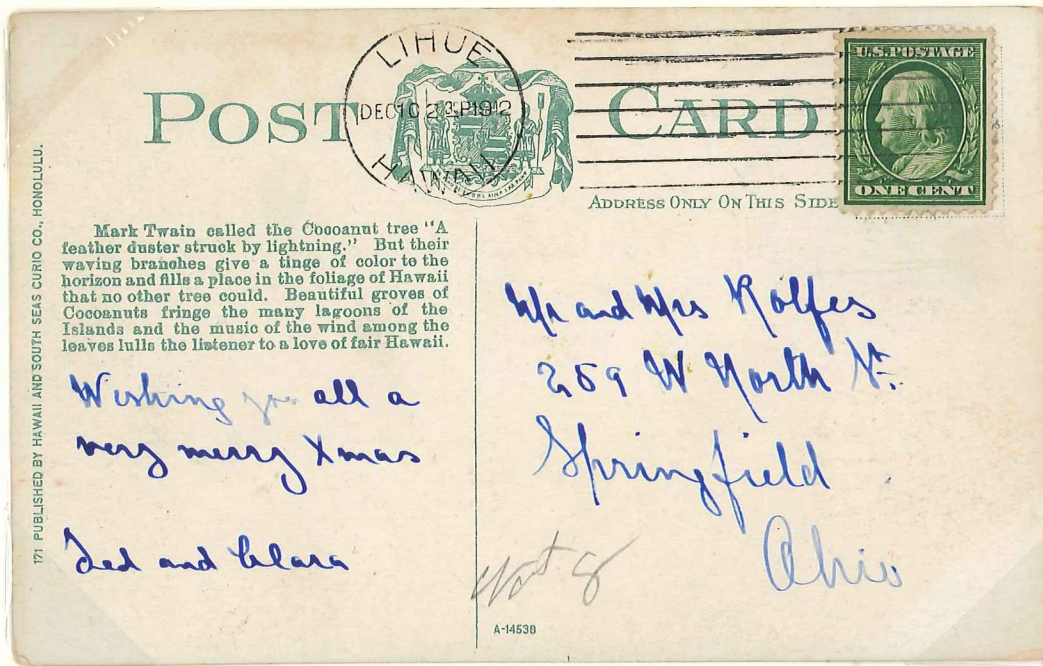 POST CARD
LIHUE
DEC 10 2 30P 1912
HAWAII
U.S. POSTAGE
ONE CENT
ADDRESS ONLY ON THIS SIDE
171 PUBLISHED BY HAWAII AND SOUTH SEAS CURIO CO., HONOLULU.
Mark Twain called the Cocoanut tree "A
feather duster struck by lightning." But their
waving branches give a tinge of color to the
horizon and fills a place in the foliage of Hawaii
that no other tree could. Beautiful groves of
Cocoanuts fringe the many lagoons of the
Islands and the music of the wind among the
leaves lulls the listener to a love of fair Hawaii.
Wishing you all a
very merry Xmas
Ted and Clara
Mr and Mrs Rolfes
259 W North St.
Springfield
Ohio
A-14530